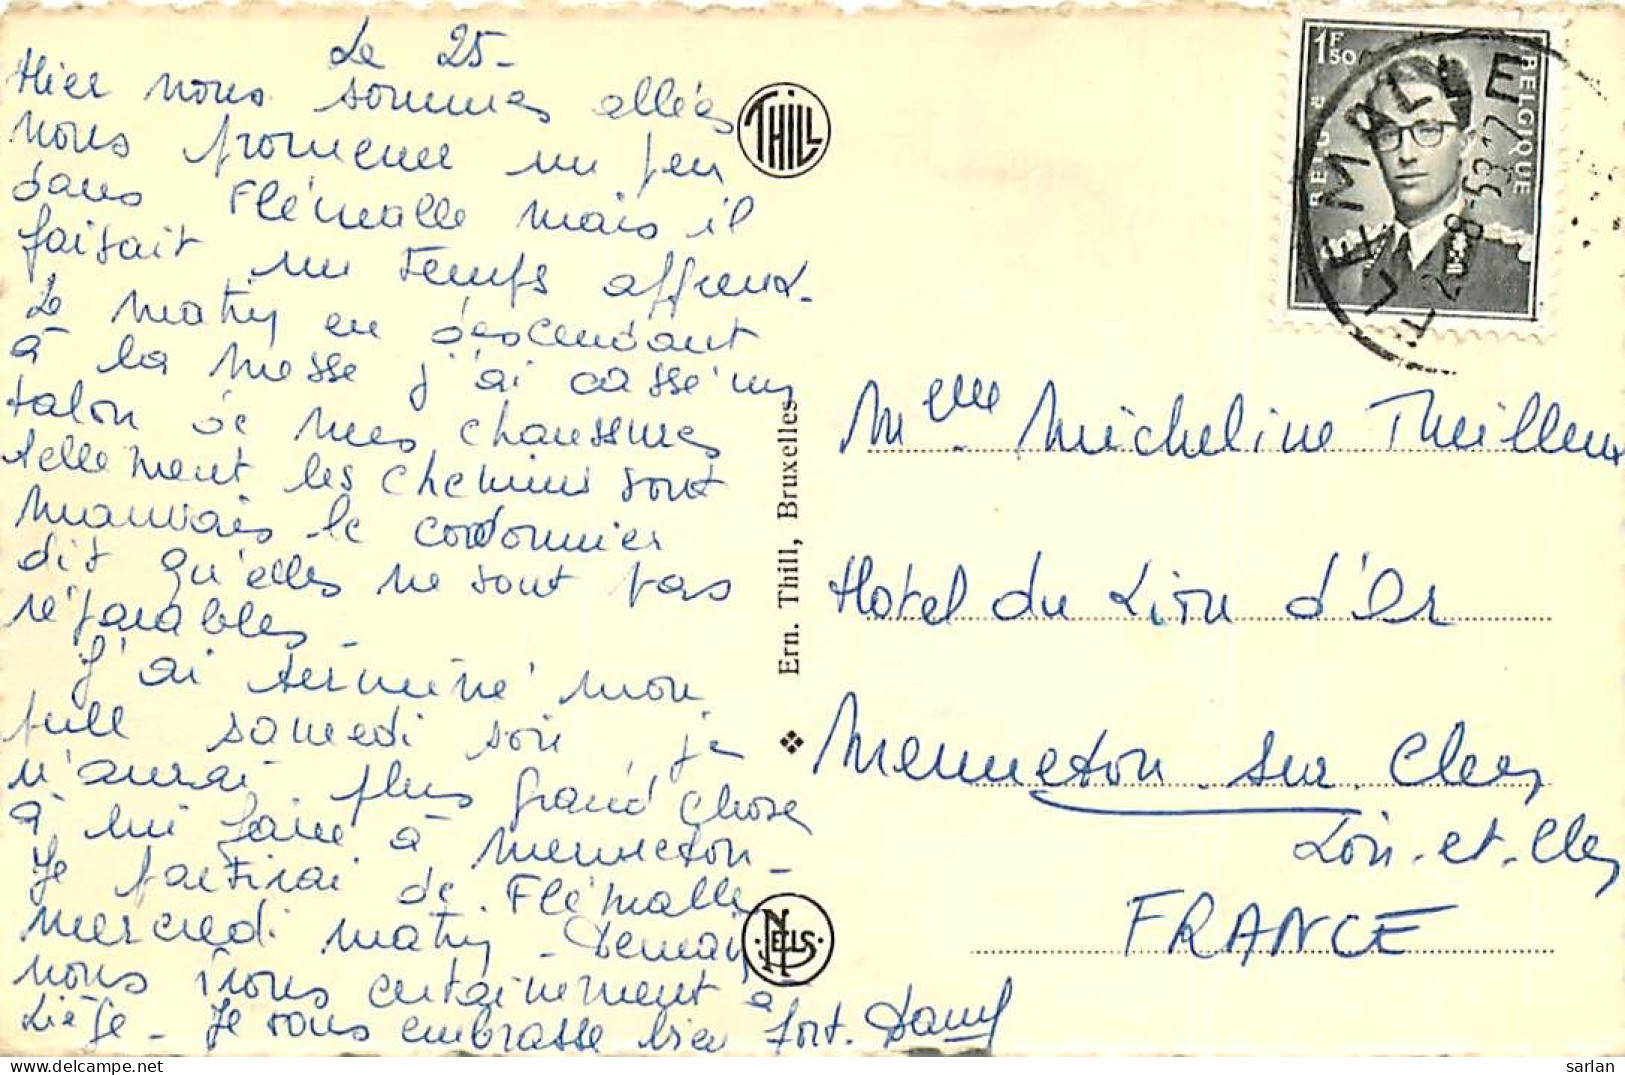 Le 25-
Hier nous sommes allées
nous promener un peu
dans Flémalle mais il
faisait un temps affreux.
Le matin en descendant
à la messe j'ai cassé un
talon de mes chaussures
tellement les chemins sont
mauvais le cordonnier
dit qu'elles ne sont pas
réparables.
J'ai terminé mon
pull samedi soir je
n'aurai plus grand chose
à lui faire à Menneton-
Je partirai de Flémalle
mercredi matin - Demain
nous irons certainement à
Liège - Je vous embrasse bien fort.
THILL
Ern. Thill, Bruxelles
NELS
1F50
BELGIE
BELGIQUE
FLEMALLE
Melle Micheline Theilleux
Hotel du Lion d'Or
Menneton sur Cher
Loir-et-Cher
FRANCE
sarlan